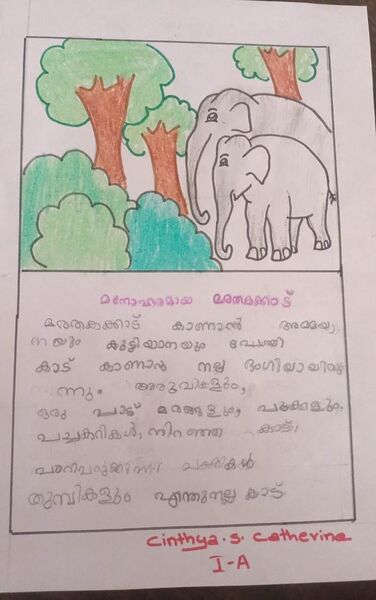 മനോഹരമായ മരതകക്കാട്
മരതകക്കാട് കാണാൻ അമ്മയാ
നയും കുട്ടിയാനയും പോയി
കാട് കാണാൻ നല്ല ഭംഗിയായിരു
ന്നു. അരുവികളും,
ഒരു പാട് മരങ്ങളും, പൂക്കളും,
പച്ചകറികൾ, നിറഞ്ഞ കാട്,
പാറിപറക്കുന്ന പക്ഷികൾ
തുമ്പികളും എന്തുനല്ല കാട്
Cinthya.S. Catherine
I-A